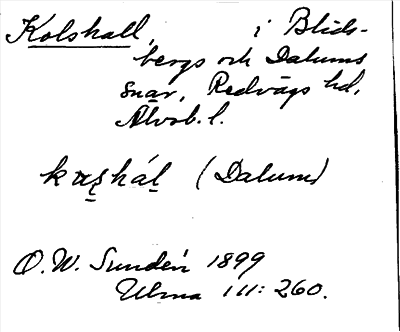 Kolshall, i Blids-
bergs och Dalums
snar, Redvägs hd,
Älvsb. l.
(Dalum)
O. W. Sundén 1899
Ulma 111: 260.